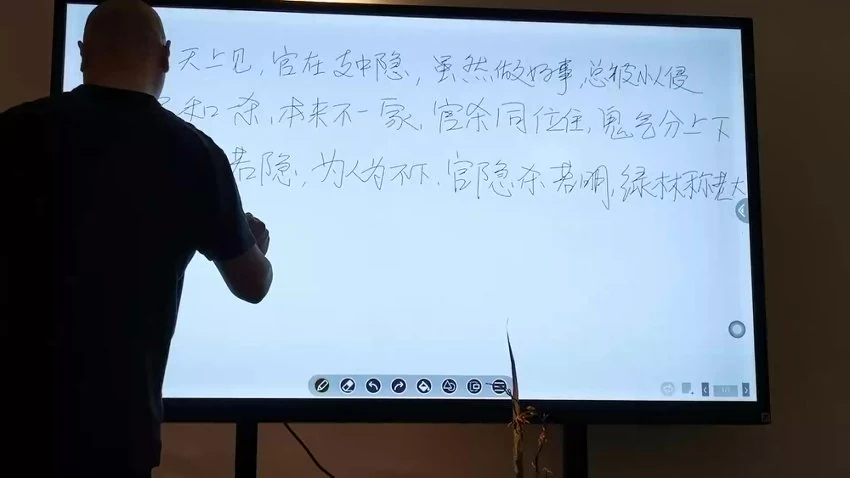 天上见，官在支中隐，虽然做好事，总被小人侵
和杀，本来不一家，官杀同位住，鬼气分上下
若隐，为人为不下，官隐杀若明，绿林称老大